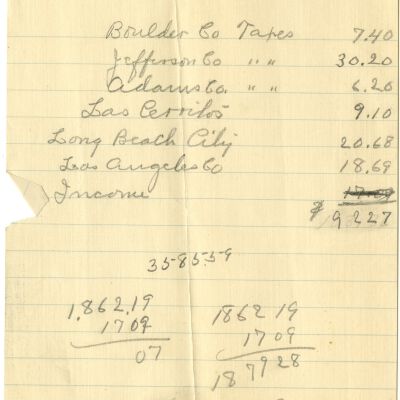 Boulder Co Taxes 7.40
Jefferson Co " " 30.20
Adams Co. " " 6.20
Las Cerritos 9.10
Long Beach City 20.68
Los Angeles Co 18.69
Income 17.09
$ 92 27
358559
1,862,19
1709
07
1862 19
1709
18 79 28